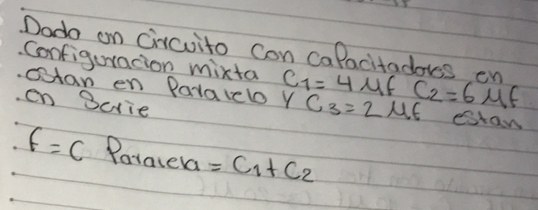 Dado un circuito con capacitadores en
configuracion mixta C1=4 Mf C2=6 Mf
estan en Paralelo Y C3=2 Mf estan
en Serie
f=C Paralela = C1+C2